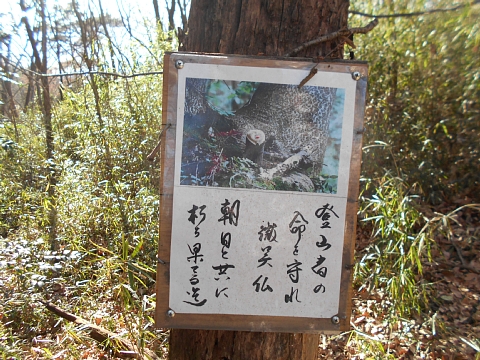 登山者の
命を守れ
微笑仏
朝日と共に
朽ち果る迄